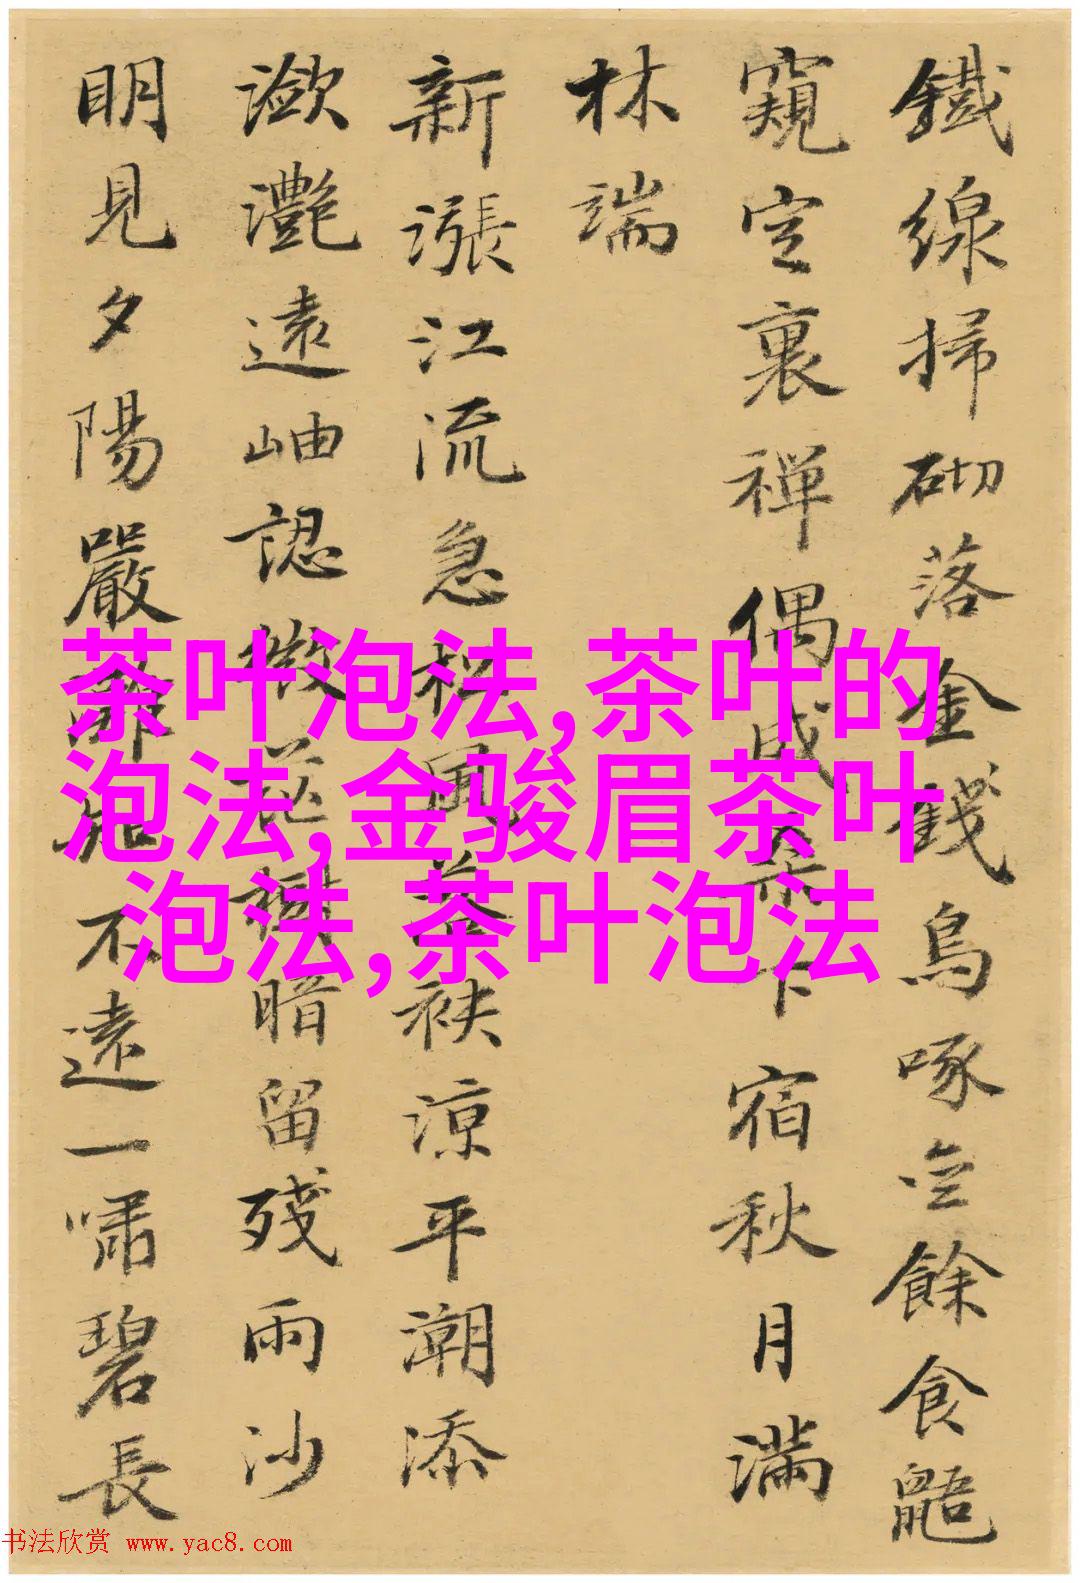 鐵線掃砌落金錢烏啄亝餘食鼯
窺定裏禪偶成桑下宿秋月滿
林端
新漲江流急風袂涼平潮添
瀲灩遠岫認微茫樹暗留殘雨沙
明見夕陽嚴不遠一嘯碧長
茶叶泡法,茶叶的
泡法,金骏眉茶叶
泡法,茶叶泡法
书法欣赏 www.yac8.com